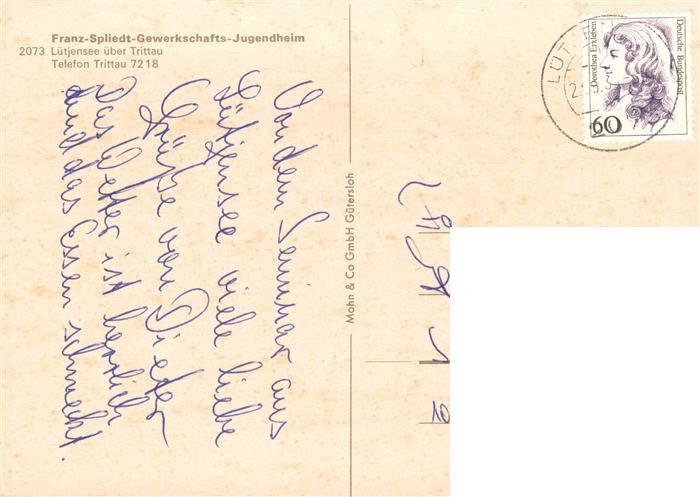 Franz-Spliedt-Gewerkschafts-Jugendheim
2073 Lütjensee über Trittau
Telefon Trittau 7218
Von dem Seminar aus
Lütjensee viele liebe
Grüße von Dieter
Das Wetter ist herrlich
und das Essen schmeckt.
Mohn & Co GmbH Gütersloh
Deutsche Bundespost
Dorothea Erxleben
60